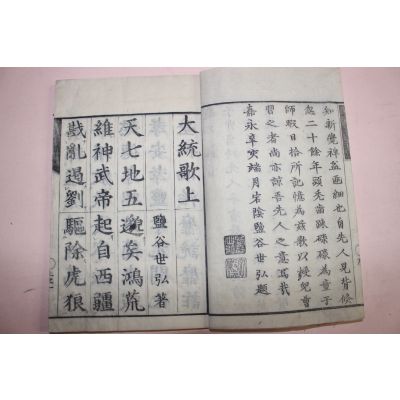 知新覺裨益匪細也自先人見背倏
忽二十餘年頭禿齒踈碌碌為童子
師暇日拾所記憶為茲歌以授兒曹
習之者尚亦諒吾先人之意焉哉
嘉永辛亥端月宕陰鹽谷世弘題
大統歌上
鹽谷世弘著
天七地五邈矣鴻荒
維神武帝起自西疆
戡亂遏劉驅除虎狼